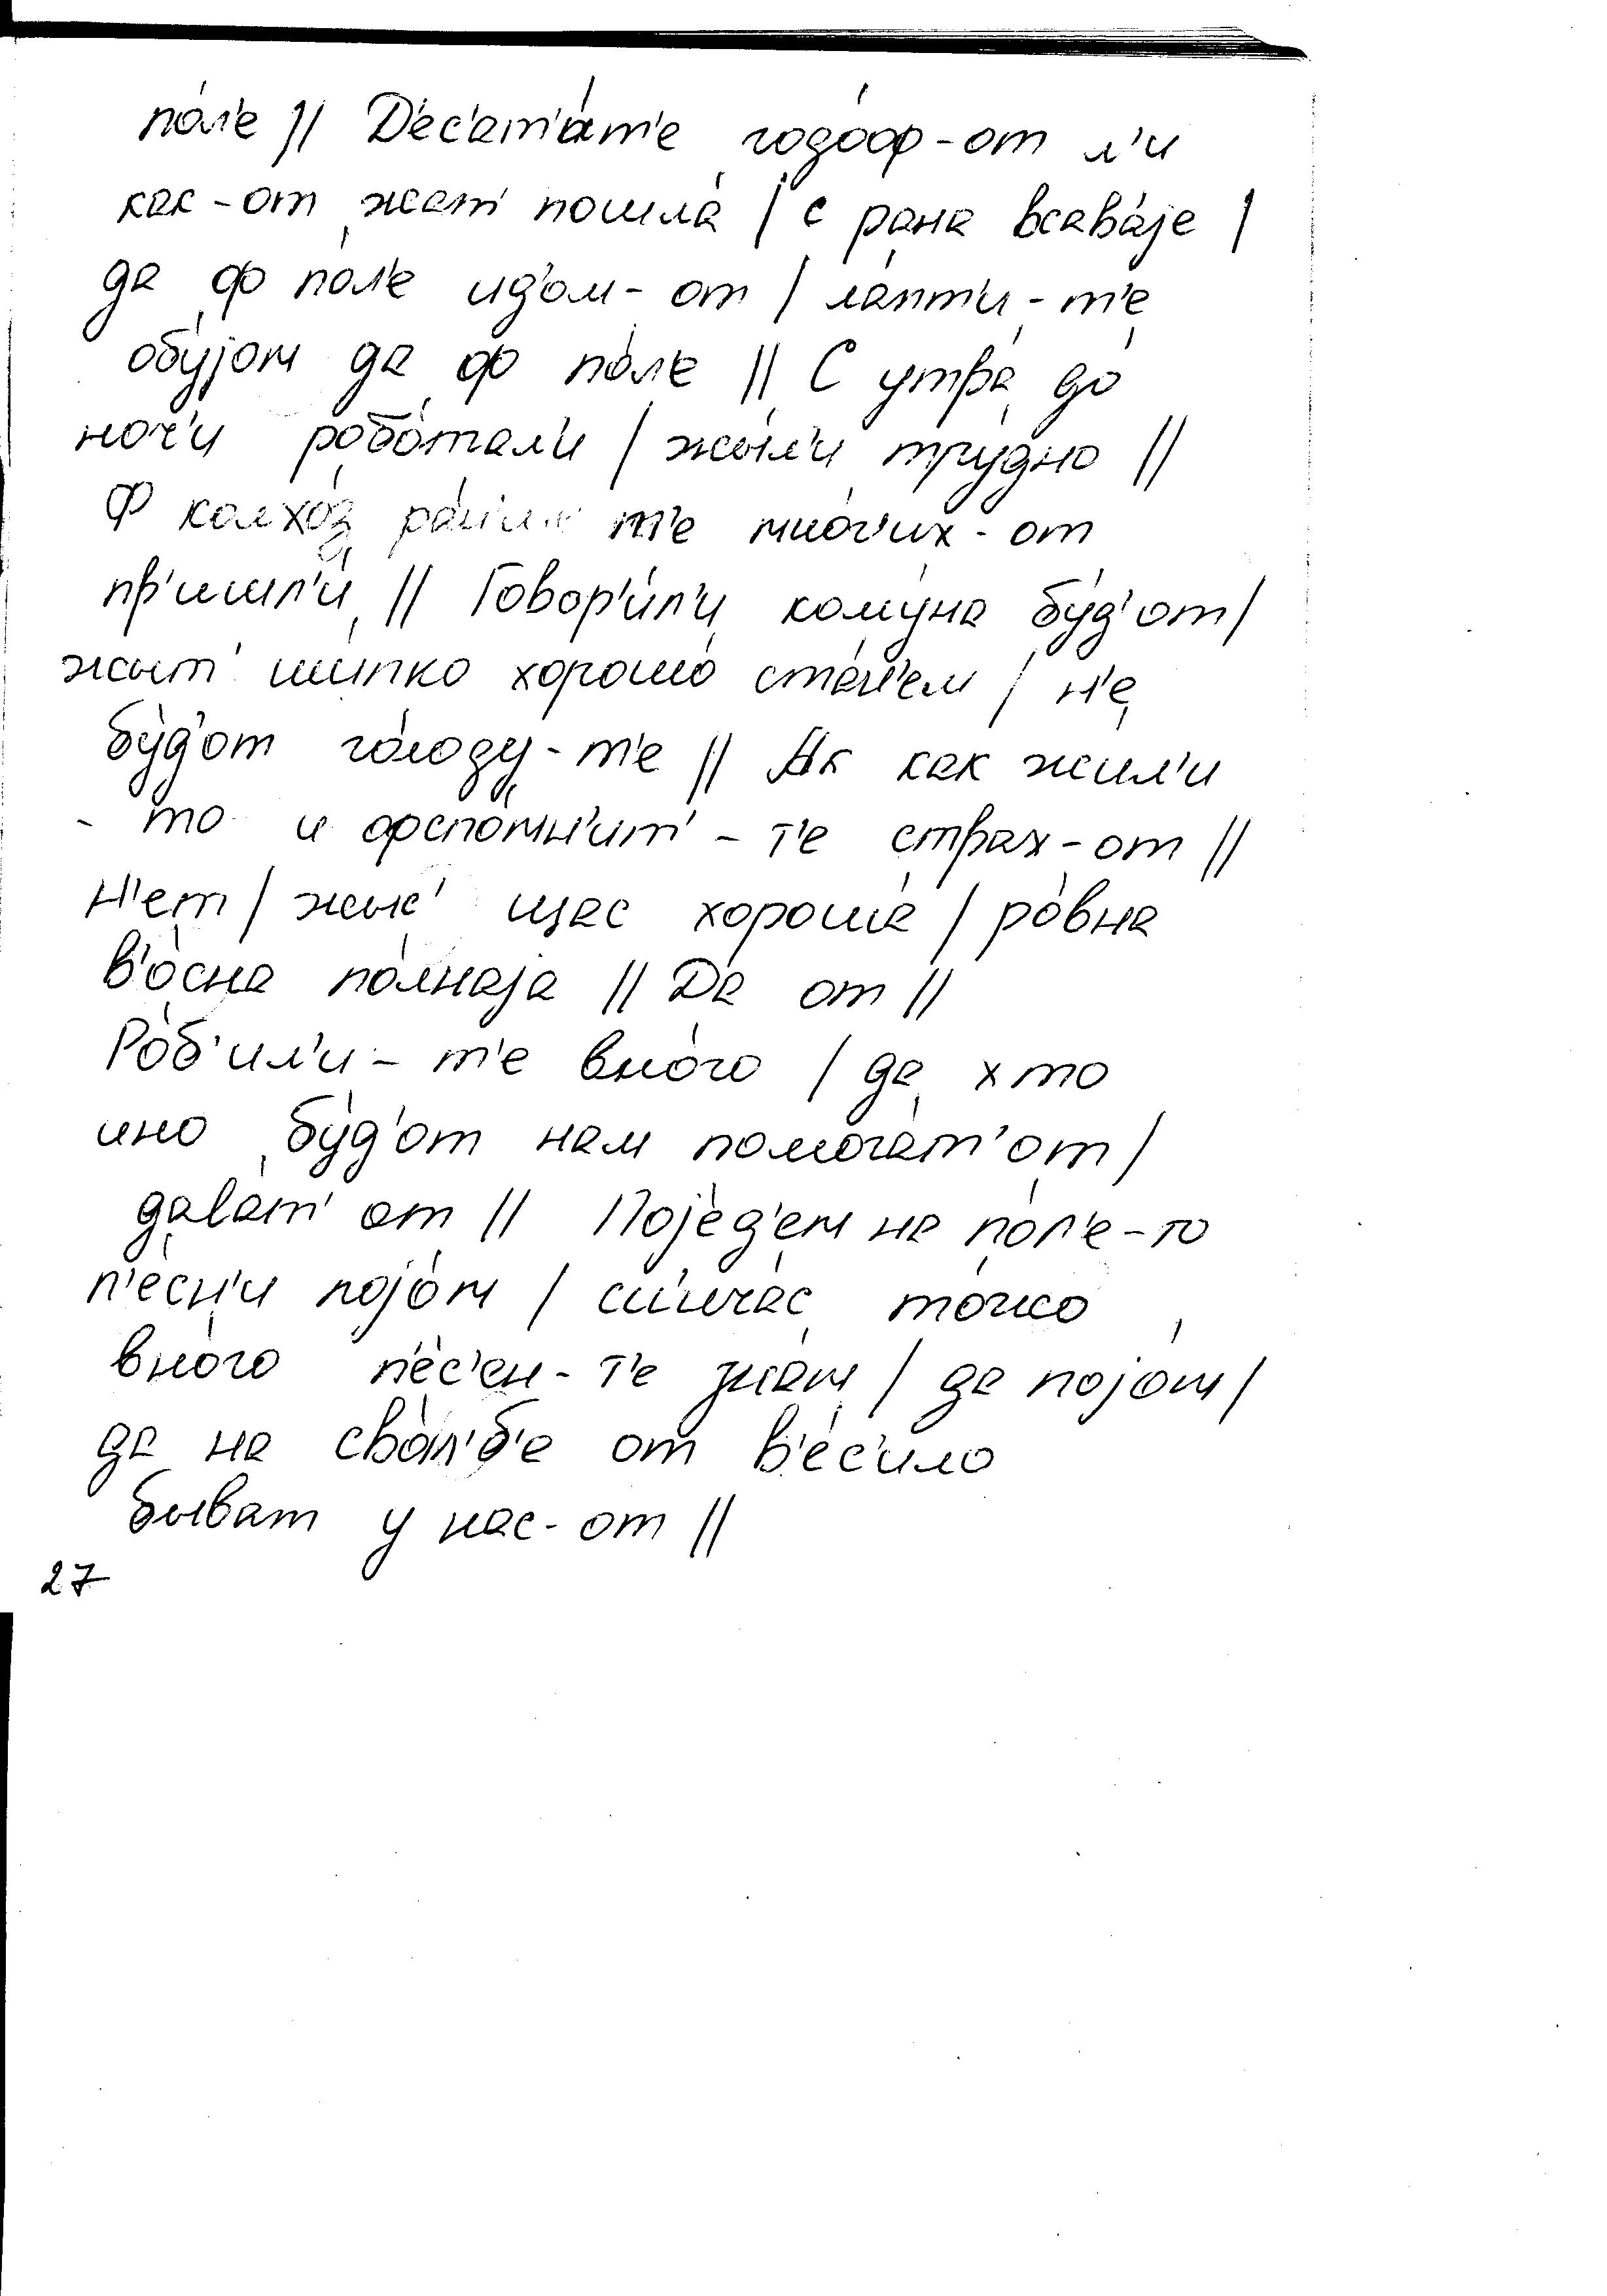 по́л'е || Д'ес'ат'а́т'е годо́оф-от л'и
как-от жат' пошла́ | с ра́на всава́је |
да ф по́л'е ид'о́м-от | ла́пт'и-т'е
обу́јом да ф по́л'е || С утра́ до́
ноч'и робо́тал'и | жы́л'и тру́дно ||
Ф колхо́з т'е мно́г'их-от
пр'ишл'и́ || Говор'и́л'и кому́на бу́д'от |
жыт' шы́пко хорошо́ ста́н'ем | н'е
бу́д'от го́лоду-т'е || Ак как жил'и
-то и фспо́мн'ит'-т'е страх-от ||
Н'ет | жыс' щас хороша́ | ро́вна
в'о́сна по́лнаја || Да от ||
Ро́б'ил'и-т'е вно́го | да хто
ино бу́д'от нам помога́т' от |
дава́т' от || Поје́д'ем на по́л'е-то
п'е́сн'и појо́м | сийча́с то́жо
вно́го п'е́с'ен-т'е зна́м | да појо́м |
да на сва́л'б'е от в'е́с'ило
быват у нас-от ||
27